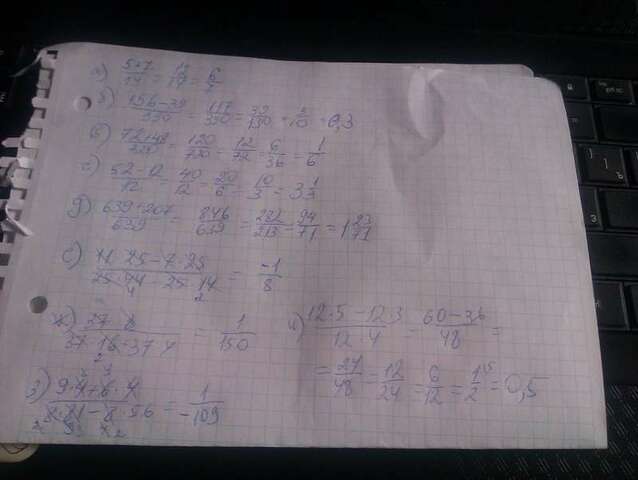 а) 5+7/14 = 12/14 = 6/7
б) 156-39/390 = 117/390 = 39/130 = 3/10 = 0,3
в) 72+48/720 = 120/720 = 12/72 = 6/36 = 1/6
г) 52-12/12 = 40/12 = 20/6 = 10/3 = 3 1/3
д) 639+207/639 = 846/639 = 282/213 = 94/71 = 1 23/71
е) = -1/8
ж) = 1/150
и) 12·5-12·3/12·4 = 60-36/48 =
= 24/48 = 12/24 = 6/12 = 1/2 = 0,5
з) 9·4+6·4 = 1/-109